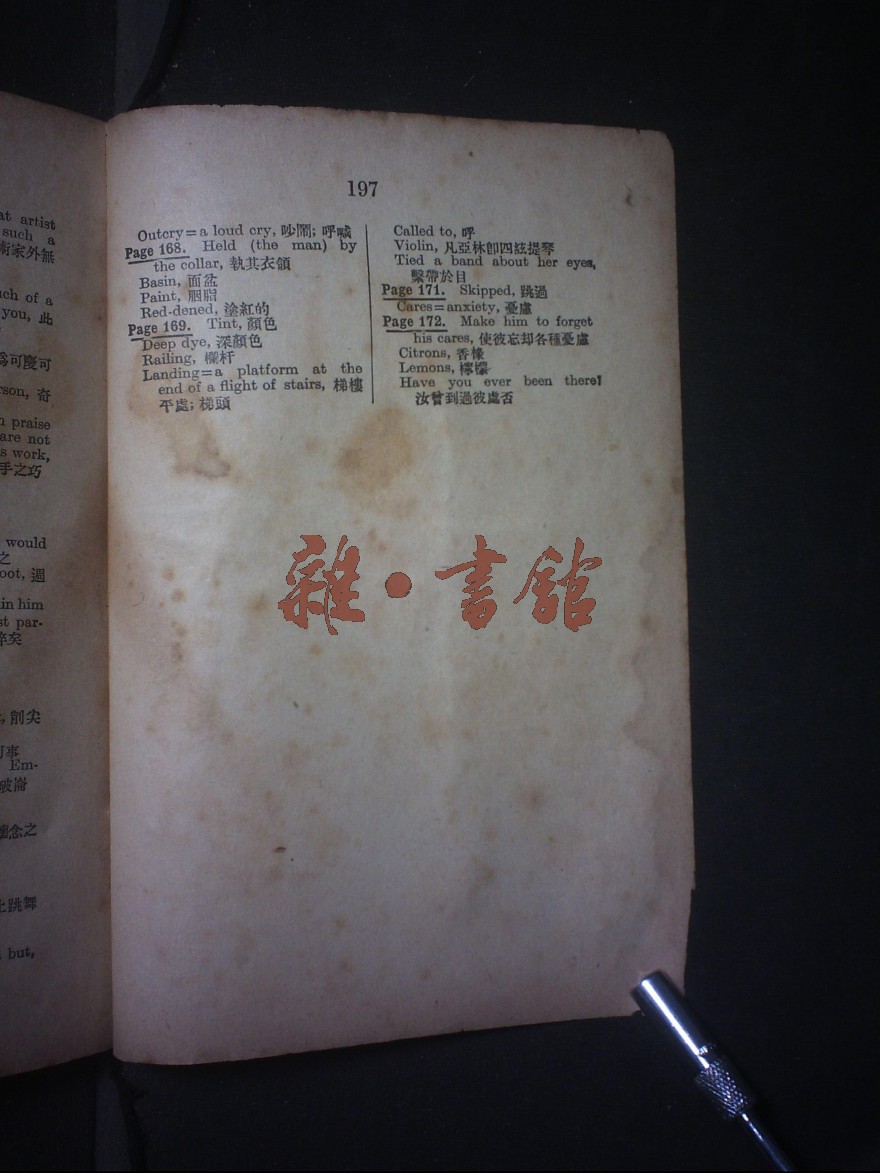 at artist
such a
術家外無
uch of a
you, 此
爲可慶可
rson, 奇
n praise
are not
s work,
手之巧
would
之
oot, 週
in him
st par-
卒矣
, 削尖
事
Em-
破崙
念之
上跳舞
but,
197
Outcry=a loud cry, 吵鬧; 呼喊
Page 168. Held (the man) by
the collar, 執其衣領
Basin, 面盆
Paint, 胭脂
Red-dened, 塗紅的
Page 169. Tint, 顏色
Deep dye, 深顏色
Railing, 欄杆
Landing=a platform at the
end of a flight of stairs, 梯樓
平處; 梯頭
Called to, 呼
Violin, 凡亞林卽四絃提琴
Tied a band about her eyes,
繫帶於目
Page 171. Skipped, 跳過
Cares=anxiety, 憂慮
Page 172. Make him to forget
his cares, 使彼忘却各種憂慮
Citrons, 香櫞
Lemons, 檸檬
Have you ever been there?
汝曾到過彼處否
雜·書館